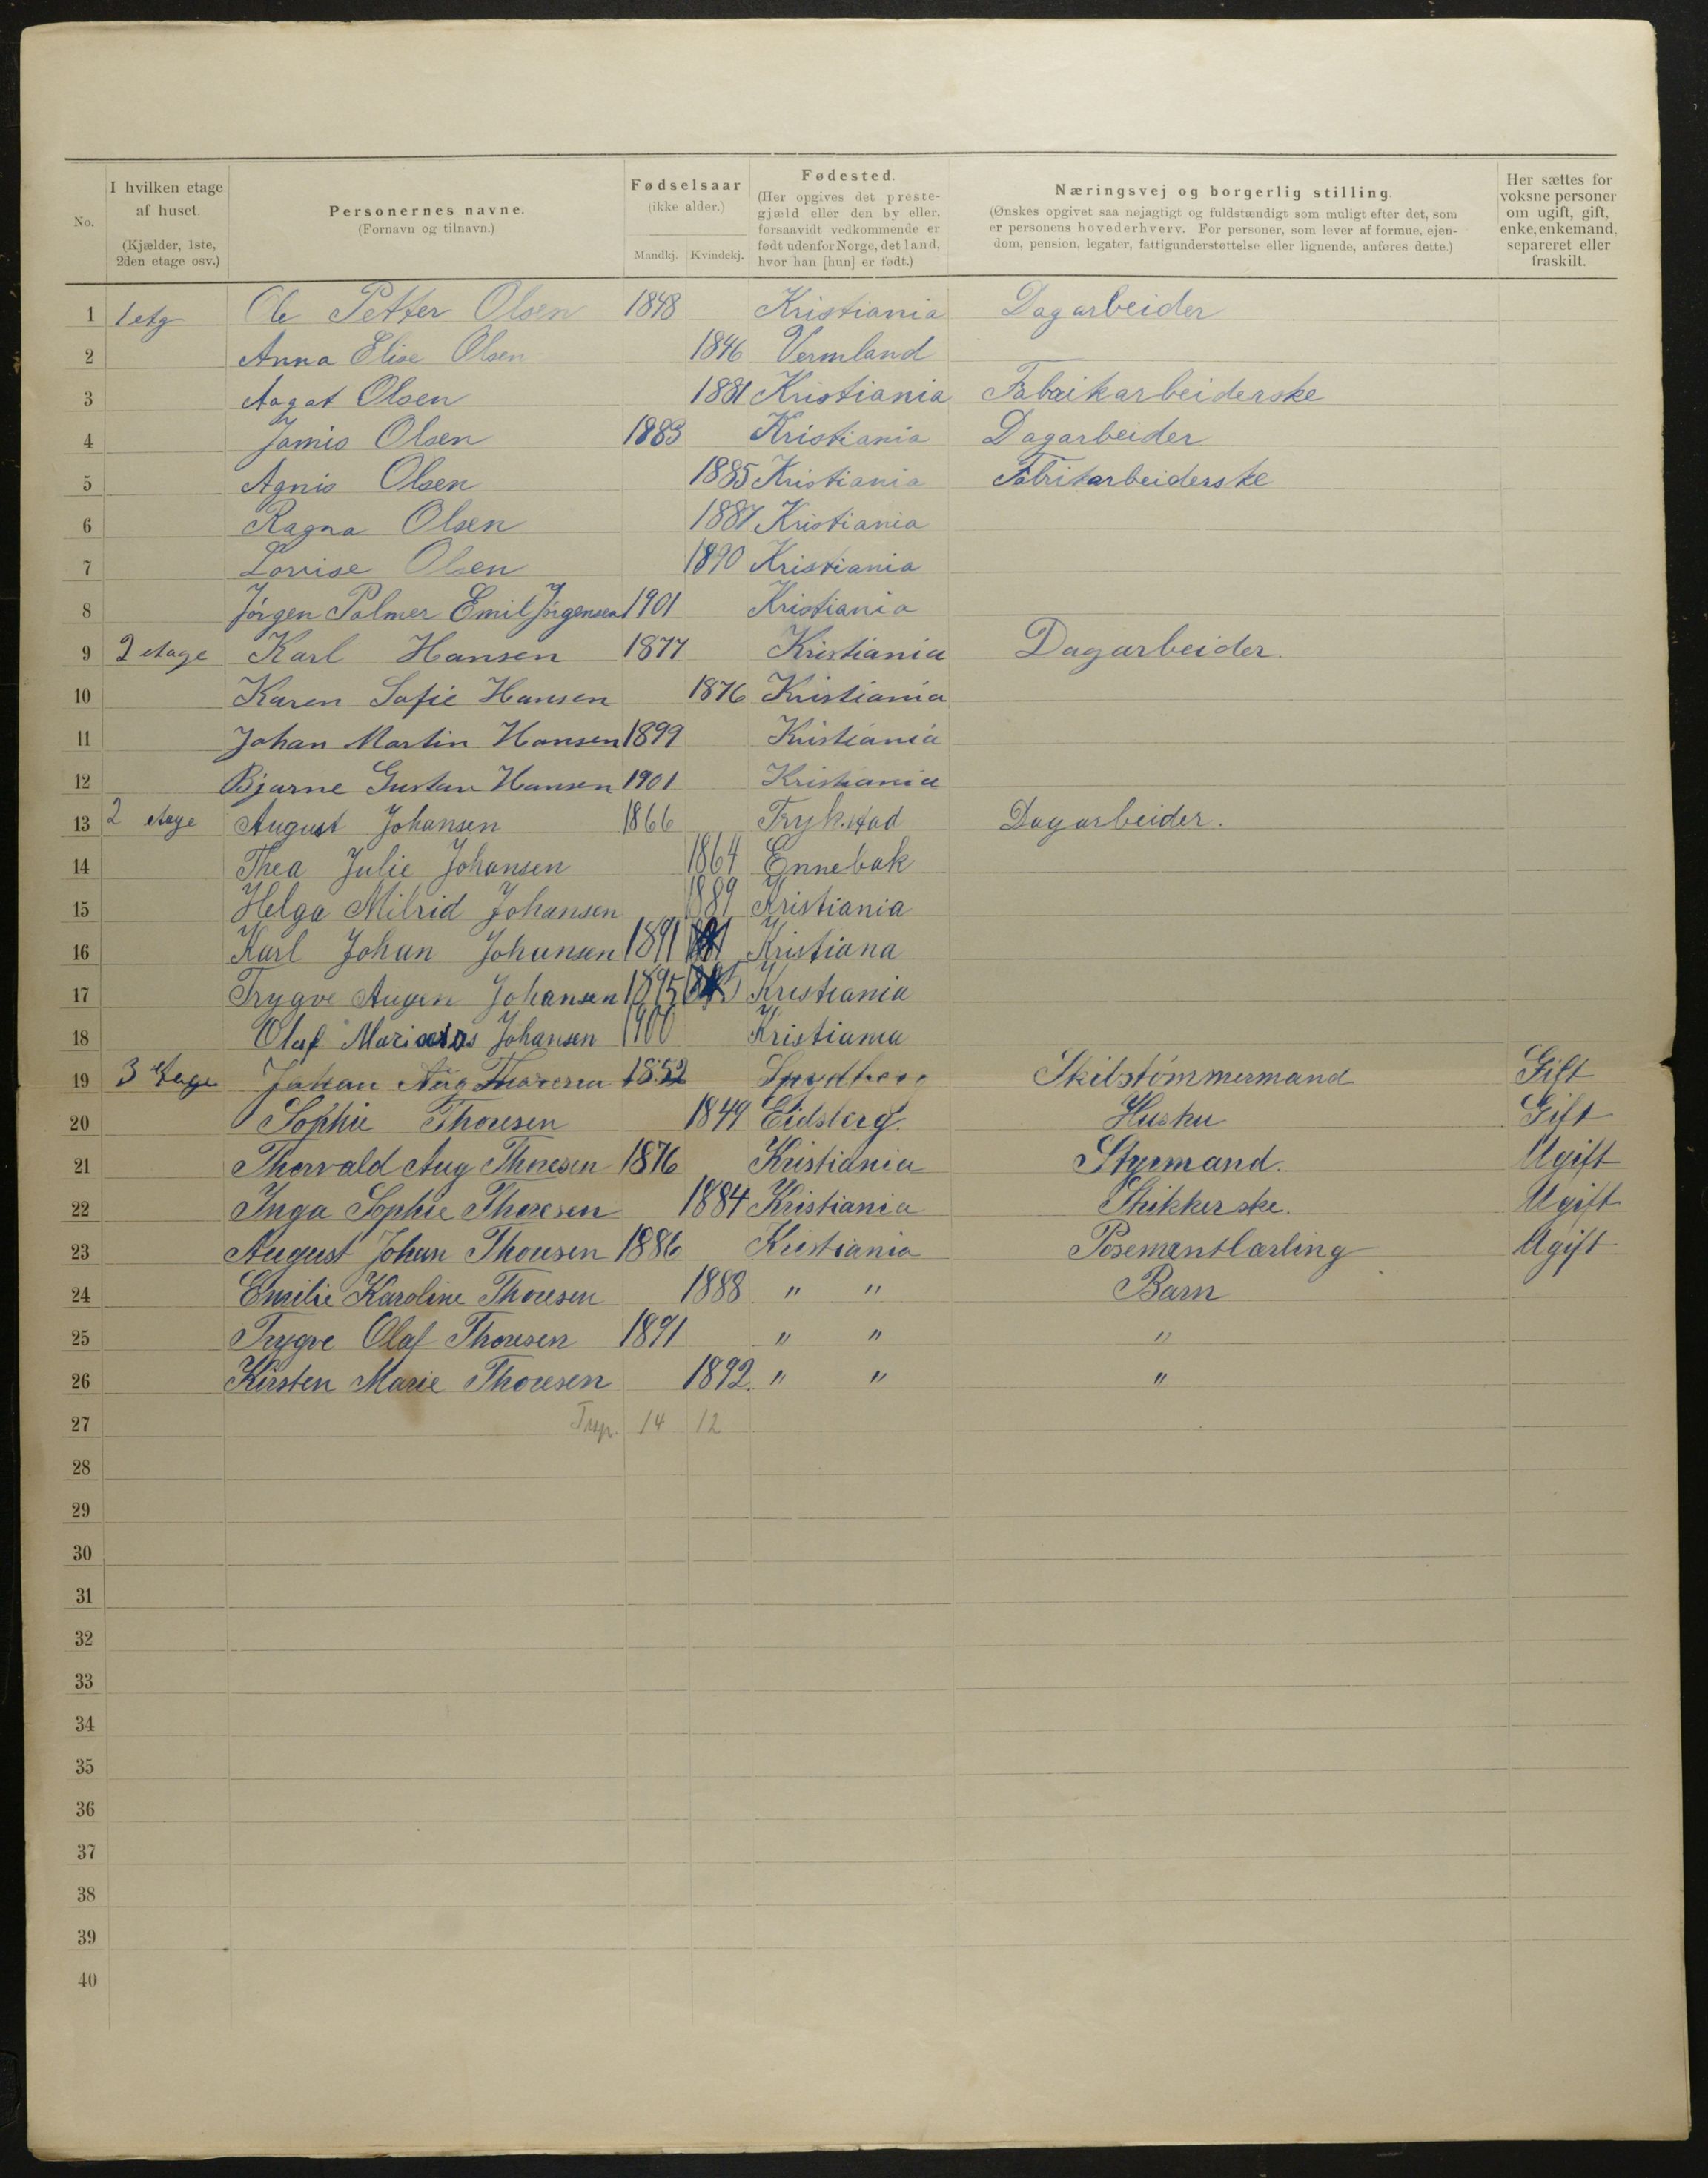 No.
I hvilken etage af huset. (Kjælder, 1ste, 2den etage osv.)
Personernes navne. (Fornavn og tilnavn.)
Fødselsaar (ikke alder.)
Mandkj. Kvindekj.
Fødested. (Her opgives det prestegjæld eller den by eller, forsaavidt vedkommende er født udenfor Norge, det land, hvor han [hun] er født.)
Næringsvej og borgerlig stilling. (Ønskes opgivet saa nøjagtigt og fuldstændigt som muligt efter det, som er personens hovederhverv. For personer, som lever af formue, ejendom, pension, legater, fattigunderstøttelse eller lignende, anføres dette.)
Her sættes for voksne personer om ugift, gift, enke, enkemand, separeret eller fraskilt.
1 1 etg Ole Petter Olsen 1848 Kristiania Dagarbeider
2 Anna Elise Olsen 1846 Vermland
3 Aagot Olsen 1881 Kristiania Fabrikarbeiderske
4 Olsen 1883 Kristiania Dagarbeider
5 Agnis Olsen 1885 Kristiania Fabrikarbeiderske
6 Ragna Olsen 1887 Kristiania
7 Lovise Olsen 1890 Kristiania
8 Jørgen Palmer Emil Jørgensen 1901 Kristiania
9 2 etage Karl Hansen 1877 Kristiania Dagarbeider.
10 Karen Sofie Hansen 1876 Kristiania
11 Johan Martin Hansen 1899 Kristiania
12 Bjarne Gustav Hansen 1901 Kristiania
13 2 etage August Johansen 1866 Trykstad Dagarbeider.
14 Thea Julie Johansen 1864 Ennebak
15 Helga Milrid Johansen 1889 Kristiania
16 Karl Johan Johansen 1891 Kristiana
17 Trygve Johansen 1895 Kristiania
18 Olaf Johansen 1900 Kristiania
19 3 Etage Johan Aug Thoresen 1852 Spydberg Skibstømmermand Gift
20 Sophie Thoresen 1849 Eidsberg. Hustru Gift
21 Thorvald Aug Thoresen 1876 Kristiania Styrmand. Ugift
22 Inga Sophie Thoresen 1884 Kristiania Strikkerske. Ugift
23 August Johan Thoresen 1886 Kristiania Posementlærling Ugift
24 Emilie Karoline Thoresen 1888 " " Barn
25 Trygve Olaf Thoresen 1891 " " "
26 Kirsten Marie Thoresen 1892. " " "
27 14 12
28
29
30
31
32
33
34
35
36
37
38
39
40